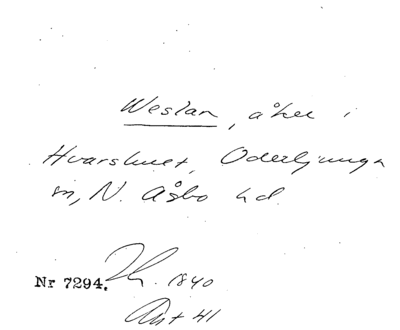 Weslan, åker i
Hvarshult, Oderljunga
sn, N. Åsbo hd.
Nr 7294. 1840
Akt 41